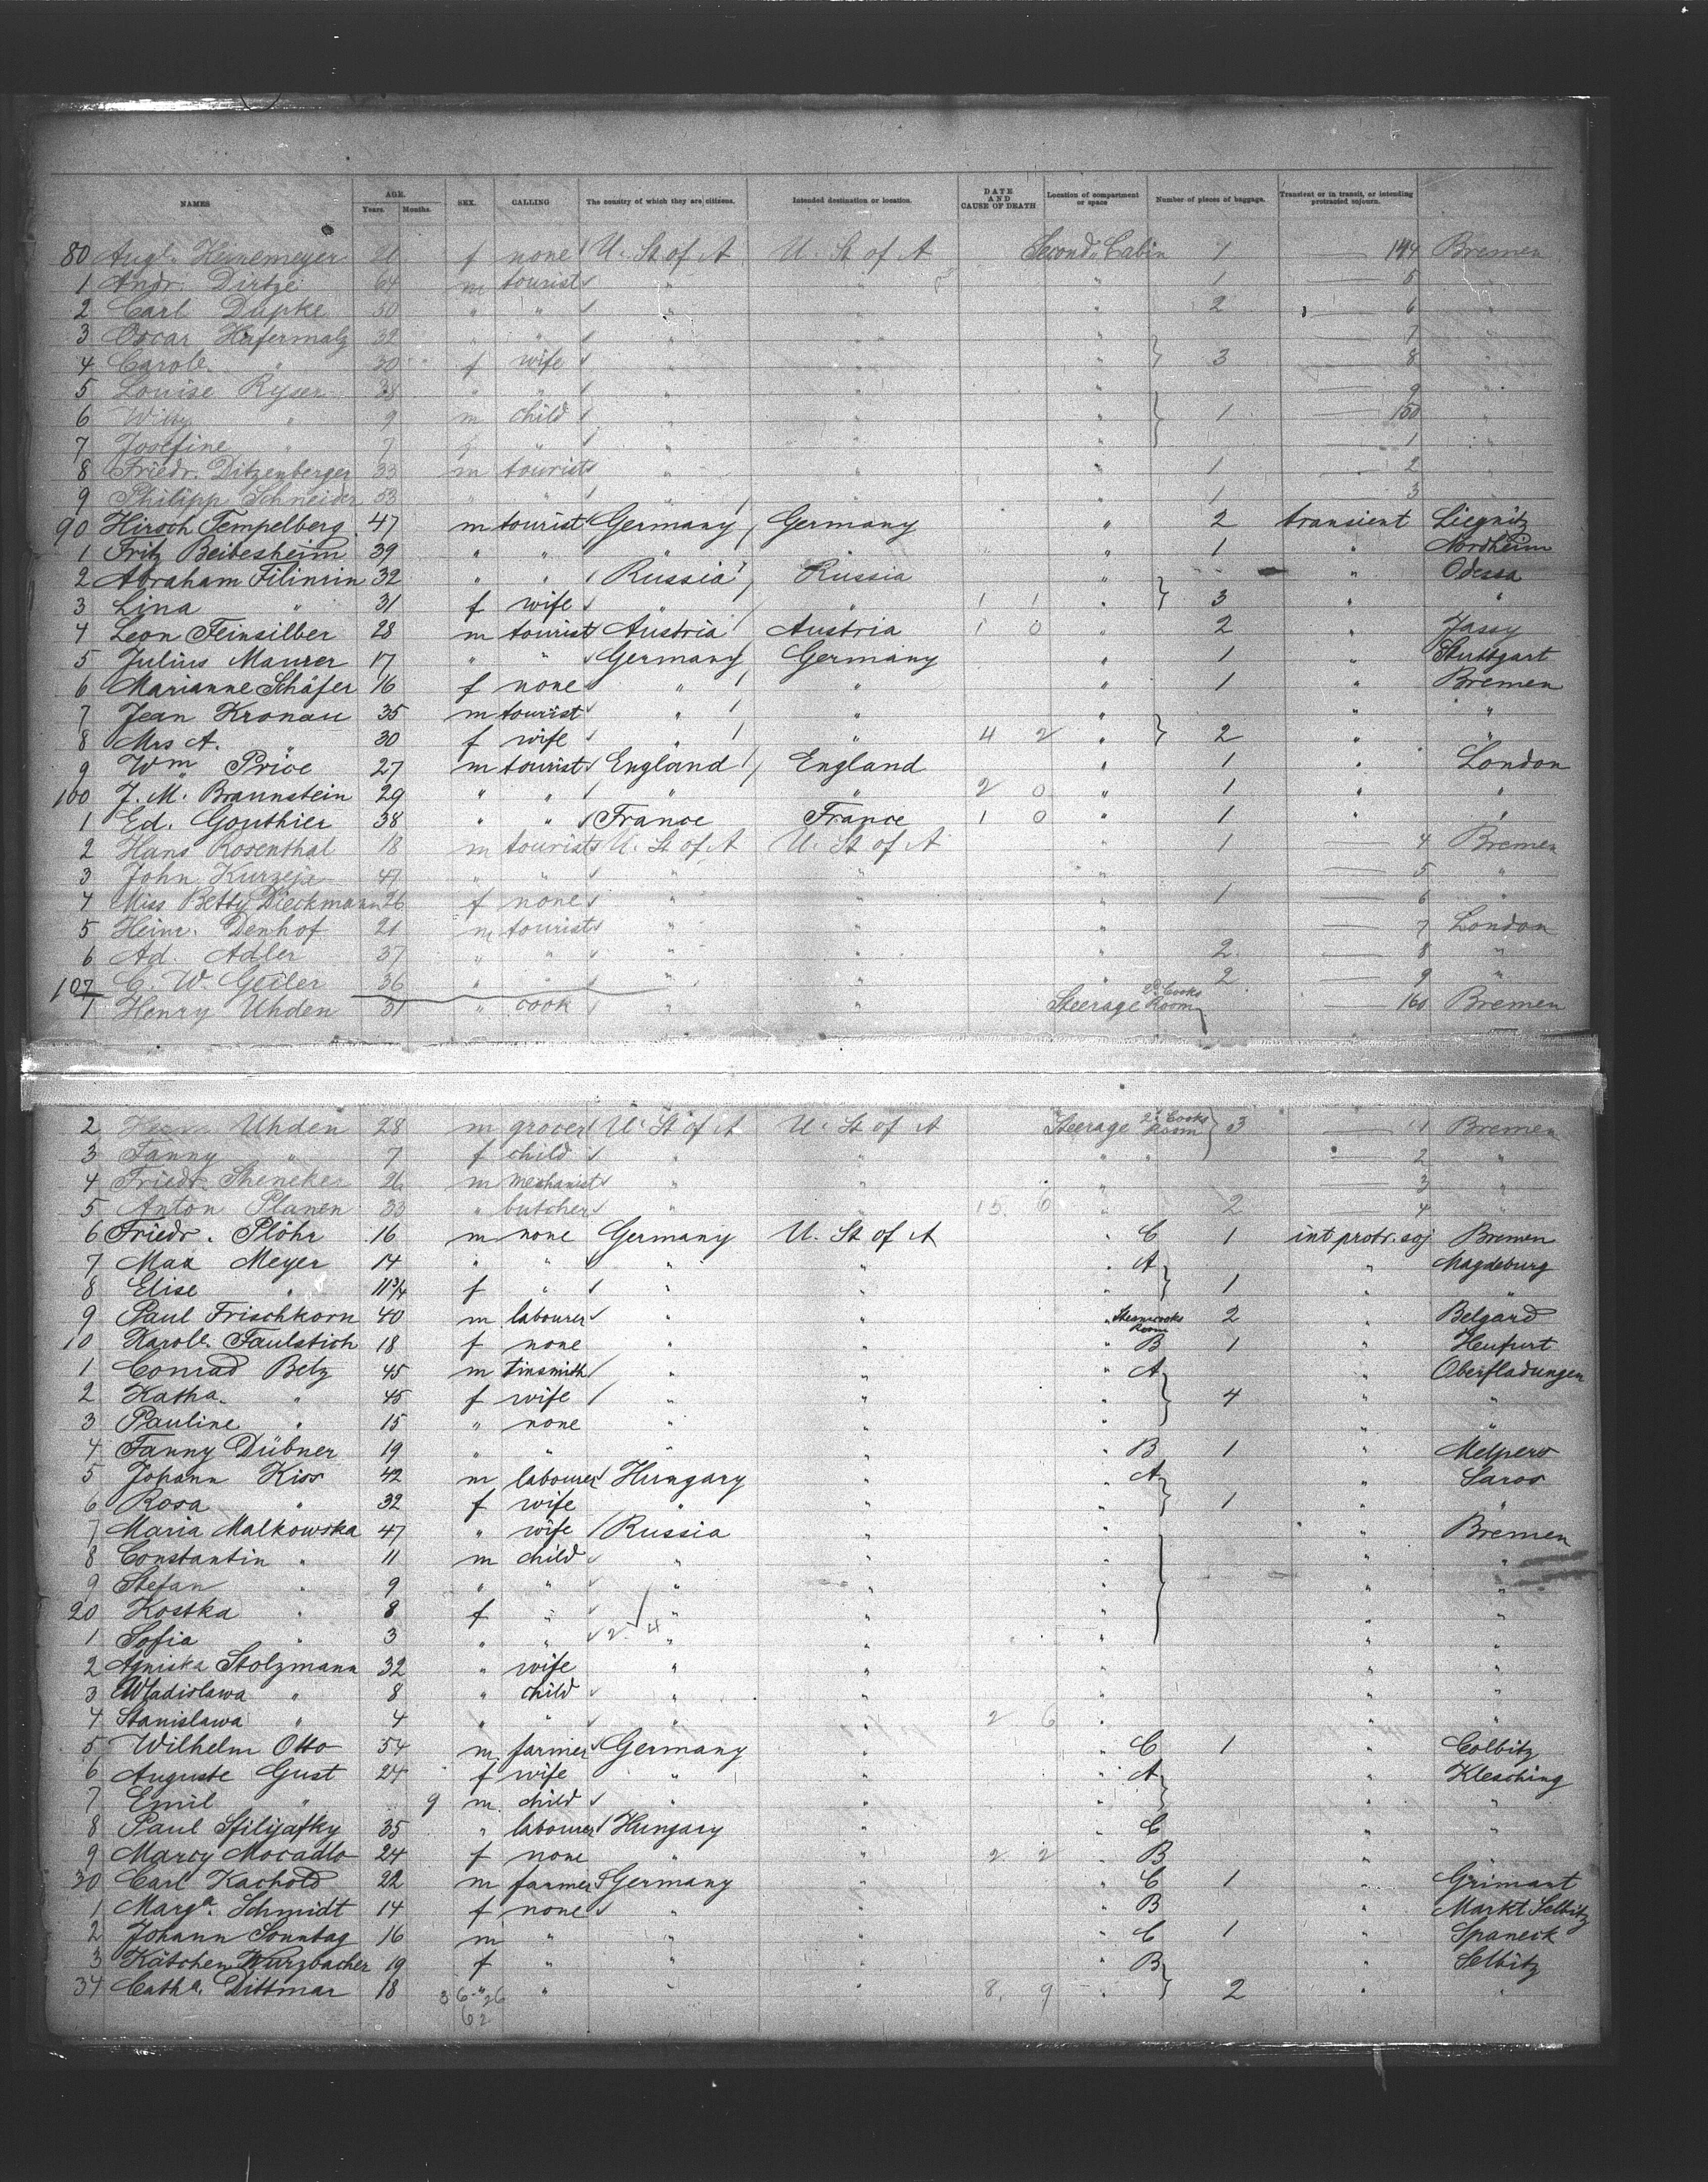 NAMES AGE. Years. Months. SEX. CALLING The country of which they are citizens. Intended destination or location. DATE AND CAUSE OF DEATH Location of compartment or space Number of pieces of baggage. Transient or in transit, or intending protracted sojourn.
80 Augte Heinemeyer f none U. St of A U. St of A Second Cabin 1 — 144 Bremen
1 Andr. Dirtze 64 m tourist " " " 1 — 5 "
2 Carl Dupke 50 " " " " " 2 — 6 "
3 Oscar Hafermalz 32 " " " " " — 7 "
4 Carole. " 30 f wife " " " 3 — 8 "
5 Louise Ryser 38 " " " " " — 9 "
6 Willy " 9 m child " " " 1 — 150 "
7 Josefine " 7 f " " " " — 1 "
8 Friedr. Ditzenberger 33 m tourist " " " 1 — 2 "
9 Philipp Schneider 53 " " " " " 1 — 3 "
90 Hirsch Tempelberg 47 m tourist Germany Germany " 2 transient Liegnitz
1 Fritz Beibesheim 39 " " " " " 1 " Nordheim
2 Abraham Filinrin 32 " " Russia Russia " " Odessa
3 Lina " 31 f wife " " 1 1 " 3 " "
4 Leon Feinsilber 28 m tourist Austria Austria 1 0 " 2 " Jassy
5 Julius Maurer 17 " " Germany Germany " 1 " Stuttgart
6 Marianne Schäfer 16 f none " " " 1 " Bremen
7 Jean Kronau 35 m tourist " " " " "
8 Mrs A. " 30 f wife " " 4 2 " 2 " "
9 Wm Price 27 m tourist England England " 1 " London
100 J. M. Braunstein 29 " " " " 2 0 " 1 " "
1 Ed. Gouthier 38 " " France France 1 0 " 1 " "
2 Hans Rosenthal 18 m tourist U. St of A U. St of A " 1 — 4 Bremen
3 John Kurzeja 47 " " " " " — 5 "
4 Miss Betty Dieckmann 26 f none " " " 1 — 6 "
5 Heinr. Denhof 21 m tourist " " " — 7 London
6 Ad. Adler 37 " " " " " 2 — 8 "
107 C. W. Geiler 36 " " " " " 2 — 9 "
1 Henry Uhden 31 " cook " " Steerage 2d Cooks Room — 160 Bremen
2 Uhden 28 m grocer U. St of A U. St of A Steerage 2d Cooks Room 3 — 1 Bremen
3 Fanny " 7 f child " " " " — 2 "
4 Friedr. Sheneker 26 m mechanist " " " — 3 "
5 Anton Planen 33 " butcher " " 15 6 " 2 — 4 "
6 Friedr. Plöhr 16 m none Germany U. St of A " C 1 int protr. soj Bremen
7 Max Meyer 14 " " " " " A " Magdeburg
8 Elise " 11 3/4 f " " " " 1 " "
9 Paul Frischkorn 40 m labourer " " " Steamcooks Room 2 " Belgard
10 Karole. Faulstich 18 f none " " " B 1 " Heufurt
1 Conrad Betz 45 m tinsmith " " " A " Oberfladungen
2 Katha. " 45 f wife " " " 4 " "
3 Pauline " 15 " none " " " " "
4 Fanny Dübner 19 " " " " " B 1 " Melpers
5 Johann Kiss 42 m labourer Hungary " " A " Saros
6 Rosa " 32 f wife " " " 1 " "
7 Maria Malkowska 47 " wife Russia " " " Bremen
8 Constantin " 11 m child " " " " "
9 Stefan " 9 " " " " " " "
20 Kostka " 8 f " " " " " "
1 Sofia " 3 " " 2 4 " " " " "
2 Agniska Stolzmann 32 " wife " " " " "
3 Wladislawa " 8 " child " " " " "
4 Stanislawa " 4 " " " " 2 6 " " "
5 Wilhelm Otto 54 m farmer Germany " " C 1 " Colbitz
6 Auguste Gust 24 f wife " " " A " Klesching
7 Emil " 9 m child " " " " "
8 Paul 35 " labourer Hungary " " C " "
9 Marcy Mocadlo 24 f none " " 2 2 " B " "
30 Carl Kachold 22 m farmer Germany " " C 1 " Grimant
1 Marga. Schmidt 14 f none " " " B " Markt Selbitz
2 Johann Sonntag 16 m " " " " C 1 " Spaneck
3 Kätchen Wurzbacher 19 f " " " " B " Selbitz
34 Catha. Dittmar 18 " " " " 8 9 " 2 " "
36 26
62